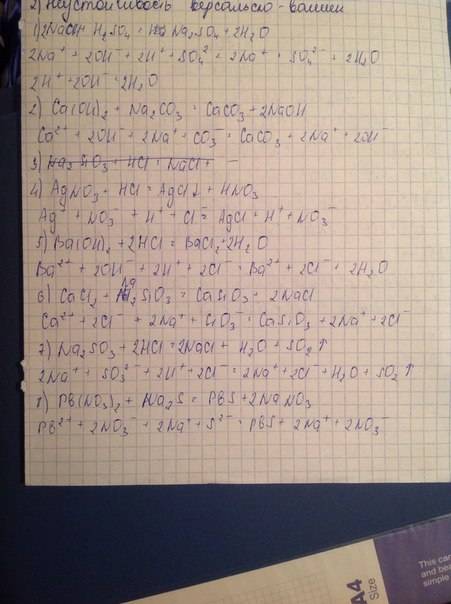 2) Неустойчивость версальско-вашин
1) 2NaOH + H₂SO₄ = Na₂SO₄ + 2H₂O
2Na⁺ + 2OH⁻ + 2H⁺ + SO₄²⁻ = 2Na⁺ + SO₄²⁻ + 2H₂O
2H⁺ + 2OH⁻ = 2H₂O
2) Ca(OH)₂ + Na₂CO₃ = CaCO₃ + 2NaOH
Ca²⁺ + 2OH⁻ + 2Na⁺ + CO₃⁻ = CaCO₃ + 2Na⁺ + 2OH⁻
3) Na₂SiO₃ + HCl = NaCl +
4) AgNO₃ + HCl = AgCl↓ + HNO₃
Ag⁺ + NO₃⁻ + H⁺ + Cl⁻ = AgCl + H⁺ + NO₃⁻
5) Ba(OH)₂ + 2HCl = BaCl₂ + 2H₂O
Ba²⁺ + 2OH⁻ + 2H⁺ + 2Cl⁻ = Ba²⁺ + 2Cl⁻ + 2H₂O
6) CaCl₂ + Na₂SiO₃ = CaSiO₃ + 2NaCl
Ca²⁺ + 2Cl⁻ + 2Na⁺ + SiO₃⁻ = CaSiO₃ + 2Na⁺ + 2Cl⁻
7) Na₂SO₃ + 2HCl = 2NaCl + H₂O + SO₂↑
2Na⁺ + SO₃²⁻ + 2H⁺ + 2Cl⁻ = 2Na⁺ + 2Cl⁻ + H₂O + SO₂↑
8) Pb(NO₃)₂ + Na₂S = PbS + 2NaNO₃
Pb²⁺ + 2NO₃⁻ + 2Na⁺ + S²⁻ = PbS + 2Na⁺ + 2NO₃⁻
A4
Size
This car
and bea
simple